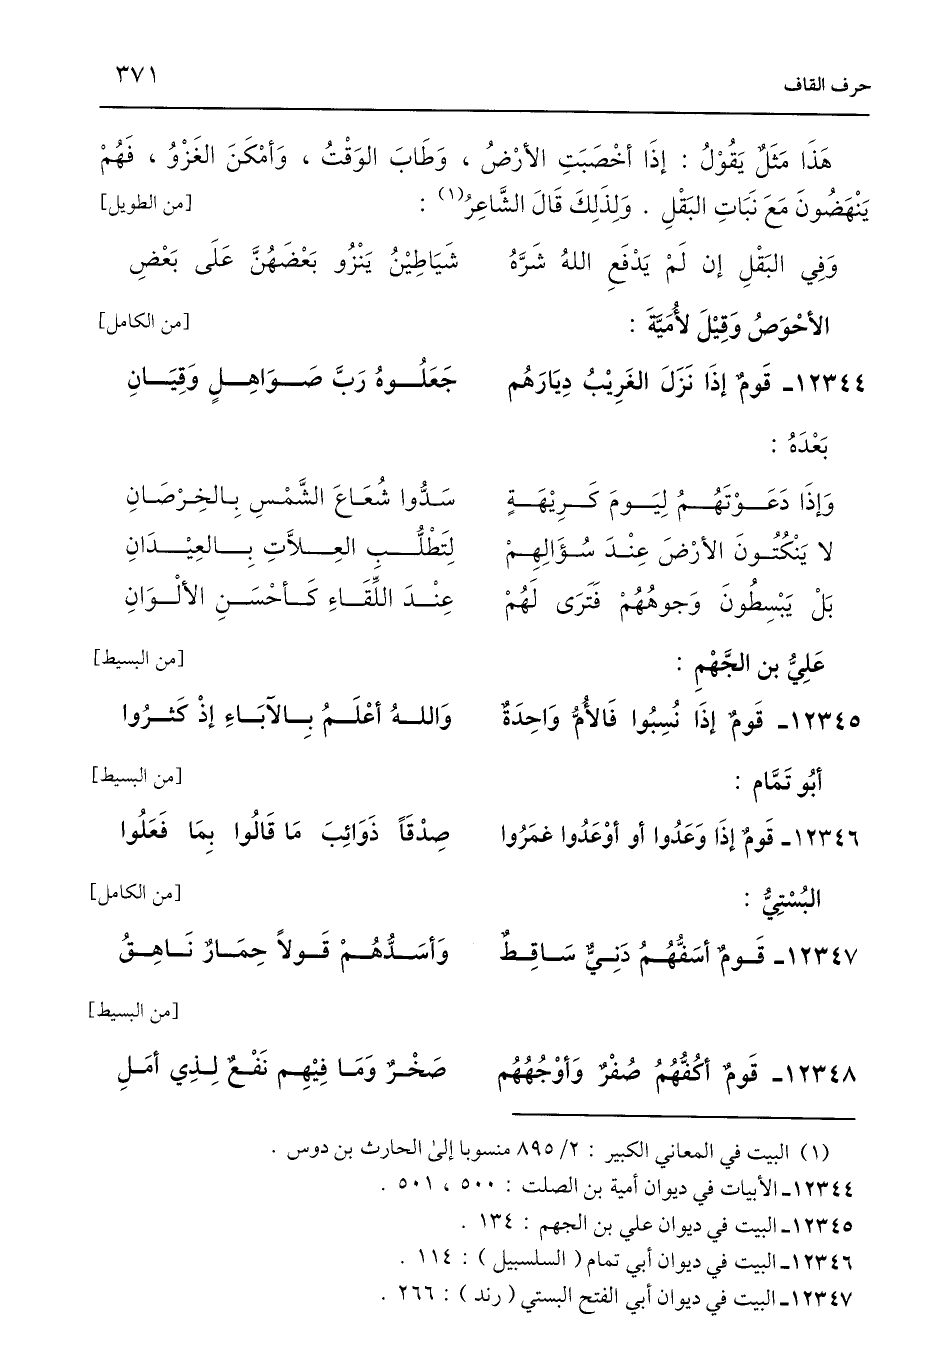 حرف القاف ٣٧١
هَذَا مَثَلٌ يَقُوْلُ : إذَا أخْصَبَتِ الأرْضُ ، وَطَابَ الوَقْتُ ، وَأمْكَنَ الغَزْوُ ، فَهُمْ
يَنْهَضُونَ مَعَ نَبَاتِ البَقْلِ . وَلِذَلِكَ قَالَ الشَّاعِرُ(١) : [من الطويل]
وَفِي البَقْلِ إن لَمْ يَدْفَعِ اللهُ شَرَّهُ شَيَاطِيْنُ يَنْزُو بَعْضَهُنَّ عَلَى بَعْضِ
الأحْوَصُ وَقِيْلَ لأُمَيَّةَ : [من الكامل]
١٢٣٤٤ـ قَومٌ إذَا نَزَلَ الغَرِيْبُ دِيَارَهُم جَعَلُــوهُ رَبَّ صَــوَاهِــلٍ وَقِيَــانِ
بَعْدَهُ :
وَإذَا دَعَــوْتَهُــمُ لِيَــومَ كَــرِيْهَــةٍ سَدُّوا شُعَاعَ الشَّمْسِ بِـالخِـرْصَـانِ
لا يَنْكُتُـونَ الأرْضَ عِنْـدَ سُـؤَالِهِـمْ لِتَطْلُّــبِ العِــلاَّتِ بِــالعِيْــدَانِ
بَلْ يَبْسِطُونَ وَجوهُهُمْ فَتَرَى لَهُمْ عِنْـدَ اللِّقَـاءِ كَـأحْسَـنِ الألْـوَانِ
عَلِيُّ بن الجَّهْمِ : [من البسيط]
١٢٣٤٥ـ قَومٌ إذَا نُسِبُوا فَالأُمُّ وَاحِدَةٌ وَاللـهُ أعْلَـمُ بِـالآبَـاءِ إذْ كَثـرُوا
أبُو تَمَّام : [من البسيط]
١٢٣٤٦ـ قَومٌ إذَا وَعَدُوا أو أوْعَدُوا غمَرُوا صِدْقَاً ذَوَائِبَ مَا قَالُوا بِمَا فَعَلُوا
البُسْتِيُّ : [من الكامل]
١٢٣٤٧ـ قَـومٌ أسَفُّهُـمُ دَنِـيٌّ سَـاقِـطٌ وَأسَـدُّهُـمْ قَـولاً حِمَـارٌ نَـاهِـقُ
[من البسيط]
١٢٣٤٨ـ قَومٌ أكُفُّهُمُ صُفْرٌ وَأوْجُهُهُم صَخْرٌ وَمَـا فِيْهِـم نَفْعٌ لِـذِي أمَـلِ
(١) البيت في المعاني الكبير : ٢/ ٨٩٥ منسوبا إلىٰ الحارث بن دوس .
١٢٣٤٤ـ الأبيات في ديوان أمية بن الصلت : ٥٠٠ ، ٥٠١ .
١٢٣٤٥ـ البيت في ديوان علي بن الجهم : ١٣٤ .
١٢٣٤٦ـ البيت في ديوان أبي تمام ( السلسبيل ) : ١١٤ .
١٢٣٤٧ـ البيت في ديوان أبي الفتح البستي ( رند ) : ٢٦٦ .